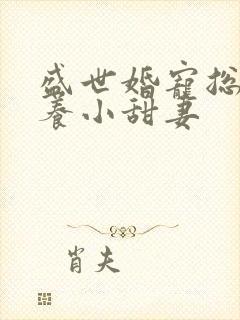 盛世婚宠总
养小甜妻
肖夫